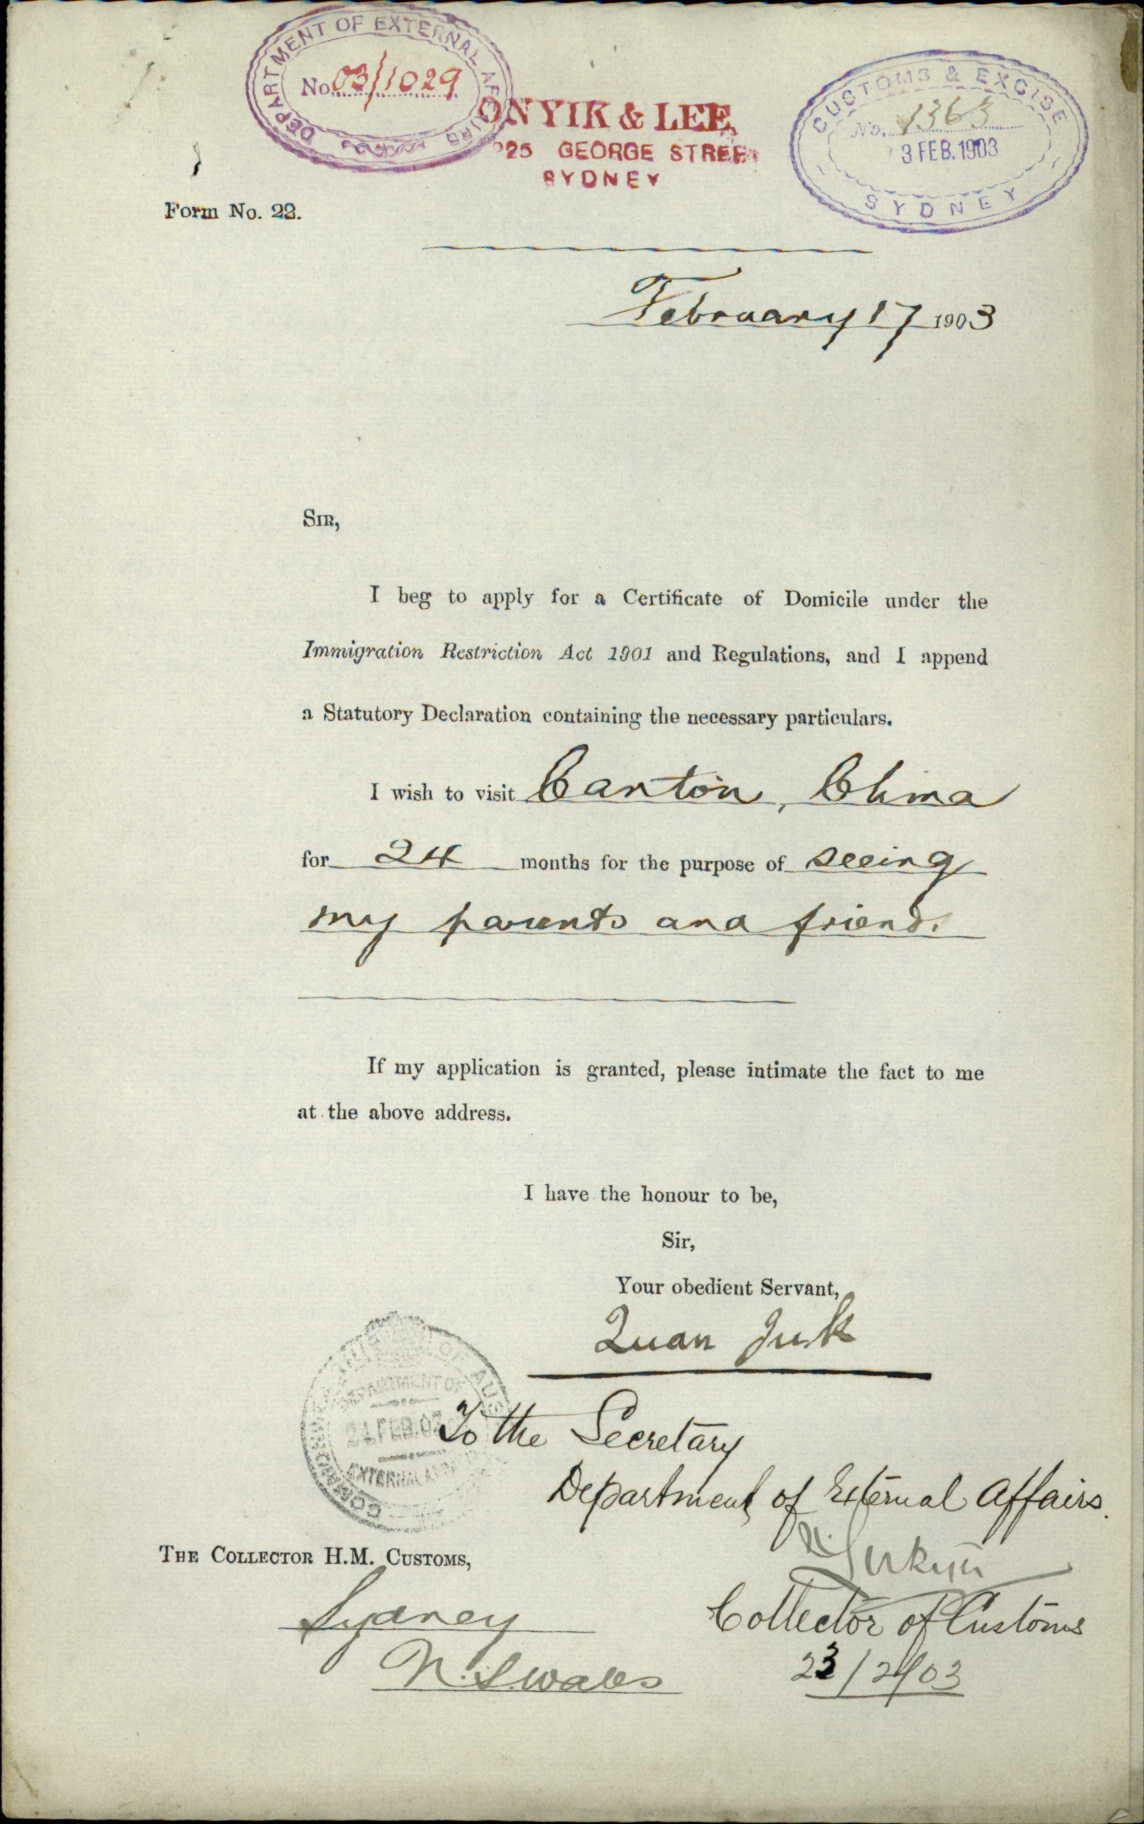 DEPARTMENT OF EXTERNAL AFFAIRS
No. 03/1029
ON YIK & LEE,
225 GEORGE STREET
SYDNEY
CUSTOMS & EXCISE
No. 1363
3 FEB. 1903
SYDNEY
Form No. 22.
February 17 1903
SIR,
I beg to apply for a Certificate of Domicile under the
Immigration Restriction Act 1901 and Regulations, and I append
a Statutory Declaration containing the necessary particulars.
I wish to visit Canton, China
for 24 months for the purpose of seeing
my parents and friend.
If my application is granted, please intimate the fact to me
at the above address.
I have the honour to be,
Sir,
Your obedient Servant,
Quan Juk
COMMONWEALTH OF AUS
DEPARTMENT OF
24 FEB. 03
EXTERNAL AFFAIRS
To the Secretary
Department of External Affairs.
THE COLLECTOR H.M. CUSTOMS,
Sydney
N. S. Wales
Collector of Customs
23/2/03